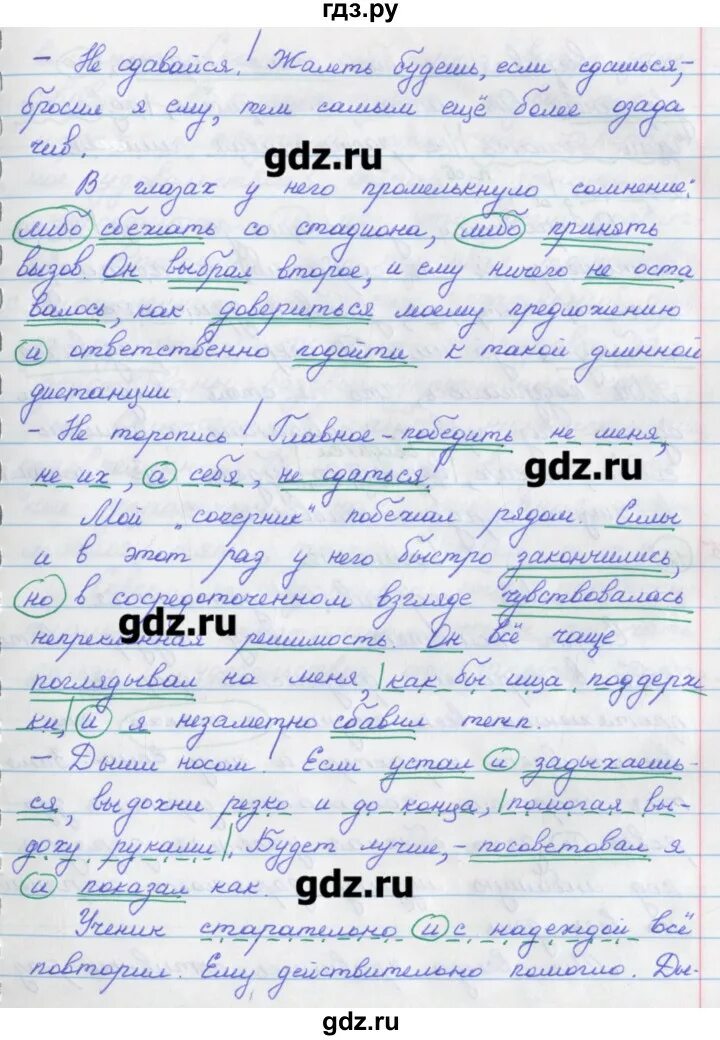 гдз.ру
– Не сдавайся! Жалеть будешь, если сдашься, –
бросил я ему, тем самым ещё более озада
чив.
gdz.ru
В глазах у него промелькнуло сомнение:
либо сбежать со стадиона, либо принять
вызов. Он выбрал второе, и ему ничего не оста
валось, как довериться моему предложению
и ответственно подойти к такой длинной
дистанции.
– Не торопись! Главное – победить не меня,
не их а себя, не сдаться!
gdz.ru
Мой „соперник" побежал рядом. Силы
и в этот раз у него быстро закончились,
но в сосредоточенном взгляде чувствовалась
gdz.ru
непреклонная решимость. Он всё чаще
поглядывал на меня, как бы ища поддерж
ки, и я незаметно сбавил темп.
– Дыши носом! Если устал и задыхаешь-
ся, выдохни резко и до конца, помогая вы-
доху руками. Будет лучше, – посоветовал я
и показал как.
gdz.ru
Ученик старательно и с надеждой всё
повторил. Ему действительно помогло. Ды-
gdz.ru